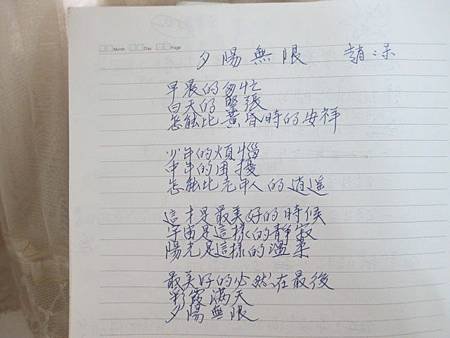 Month Day Page
夕陽無限 趙諒
早晨的匆忙
白天的緊張
怎能比黃昏時的安祥
少年的煩惱
中年的困擾
怎能比老年人的逍遙
這才是最美好的時候
宇宙是這樣的靜寂
陽光是這樣的溫柔
最美好的必然在最後
彩霞滿天
夕陽無限